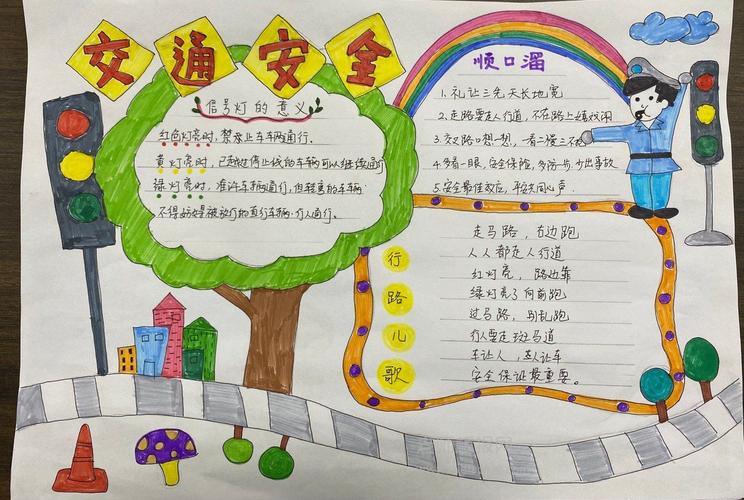 交通安全
信号灯的意义
红色灯亮时,禁止车车两通行。
黄灯亮时,已越过停止线的车辆可以继续通行
绿灯亮时,准许车辆通行,但转弯的车辆
不得妨碍被放行的直行车辆、行人通行。
顺口溜
1.礼让三先天长地宽
2.走路要走人行道,不在路上嬉戏闹
3.交叉路口想一想,一看二慢三不抢
4.多看一眼,安全保险,多防一步,少出事故
5.安全最佳效应,平安共同心声.
行路儿歌
走马路,右边跑
人人都走人行道
红灯亮,路边靠
绿灯亮了向前跑
过马路,别乱跑
行人要走斑马道
车让人,人让车
安全保证最重要。